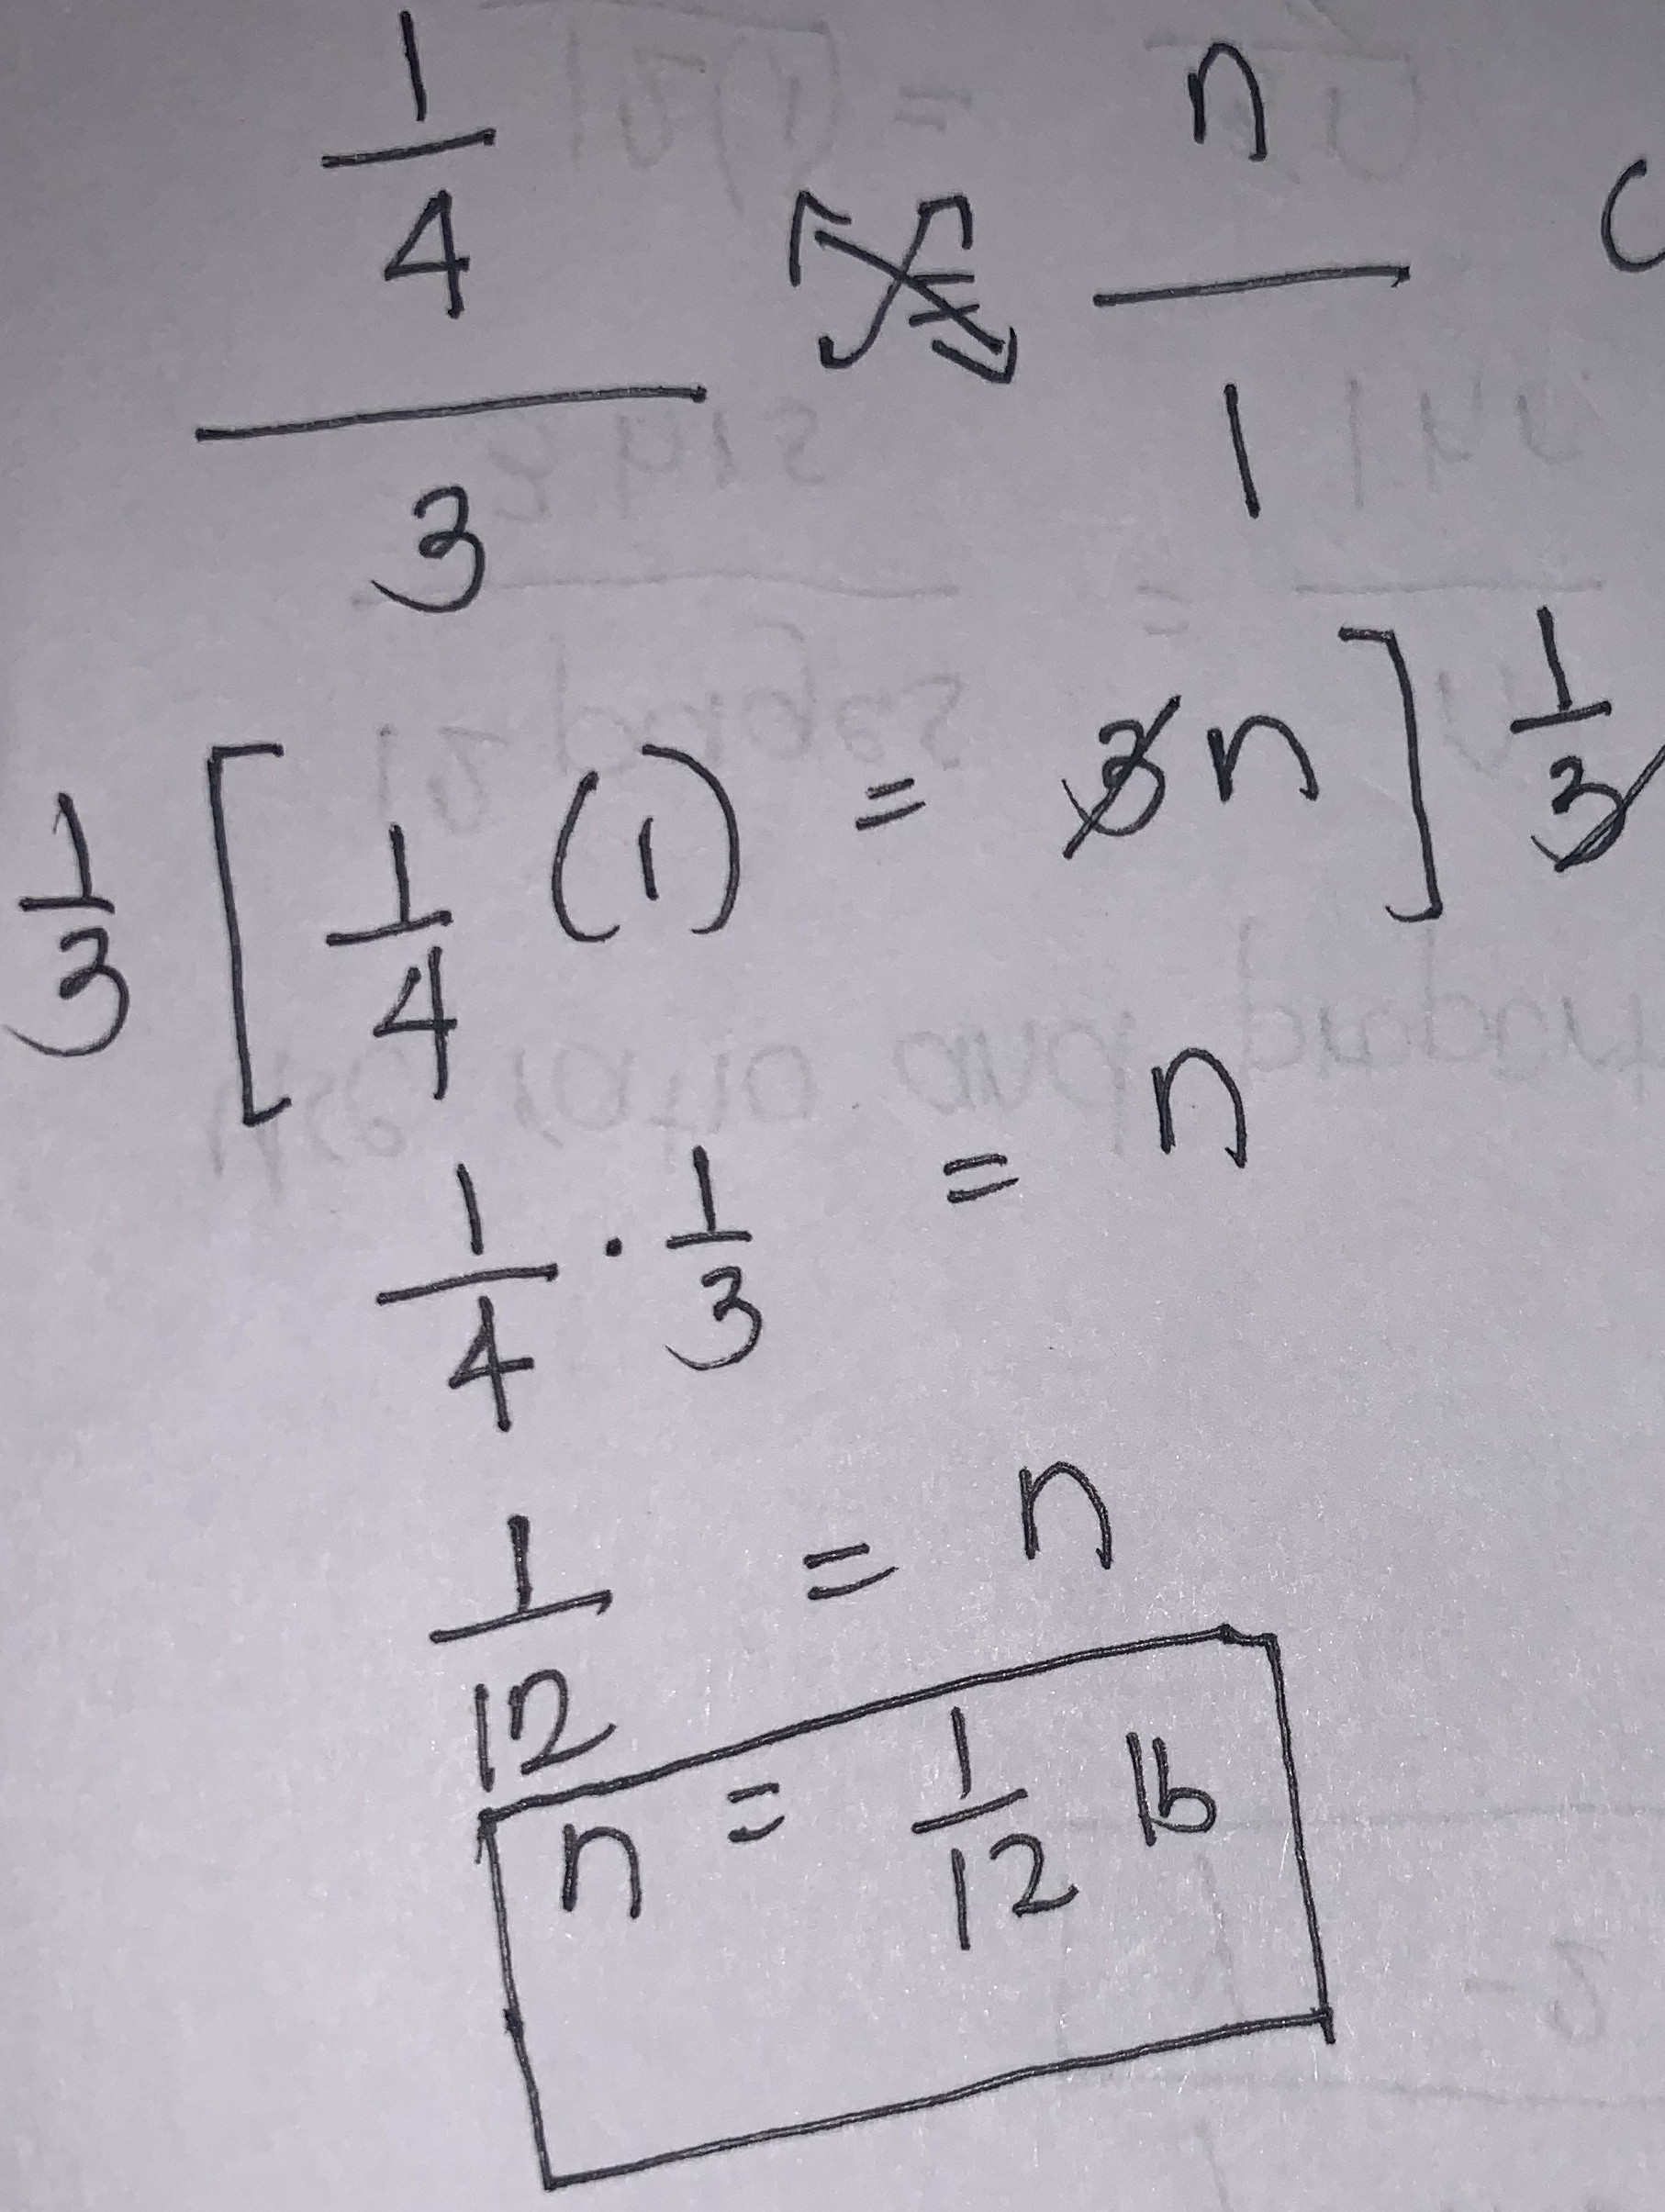 1/4 / 3 = n/1
1/3 [ 1/4 (1) = 3n ] 1/3
1/4 · 1/3 = n
1/12 = n
n = 1/12 lb